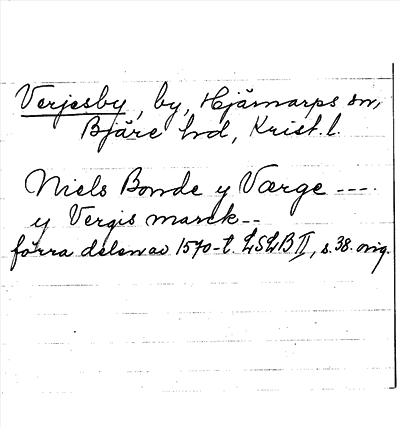 Verjesby, by, Hjärnarps sn,
Bjäre hd, Krist. l.
Niels Bonde y Værge ----
y Vergis marck--
förra delen av 1570-t. LSLB II, s. 38. orig.